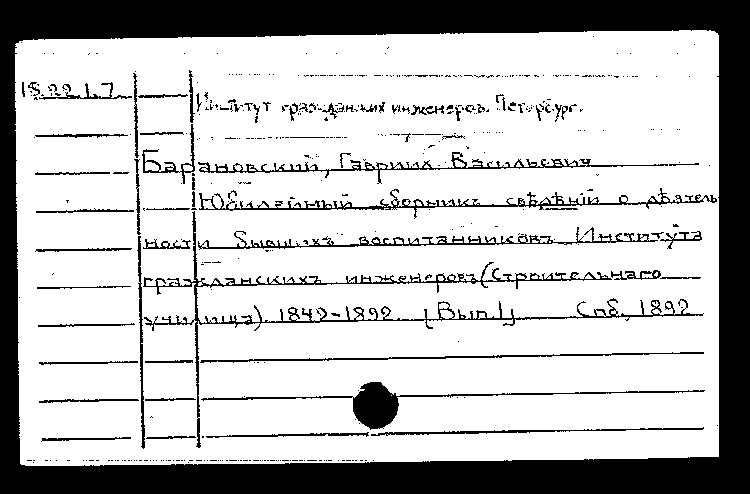 18.22.1.7
Институт гражданских инженеров. Петербург.
Барановский, Гавриил Васильевич
Юбилейный сборникъ свѣдѣній о дѣятель
ности бывшихъ воспитанниковъ Института
гражданскихъ инженеровъ (Строительнаго
училища) 1842-1892. [Вып.1] Спб., 1892